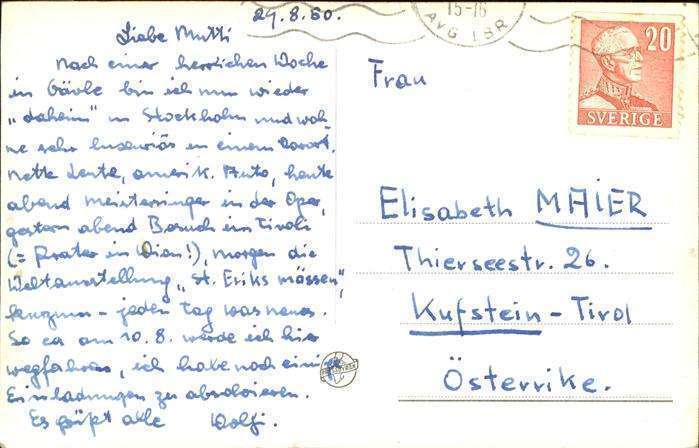 29.8.50.
Liebe Mutti
Nach einer herrlichen Woche
in Gävle bin ich nun wieder
"daheim" in Stockholm und woh-
ne sehr luxuriös in einem Vorort.
Nette Leute, amerik. Auto, heute
abend Meistersinger in der Oper,
gestern abend Besuch im Tivoli
(= Prater in Wien!), morgen die
Weltausstellung "St. Eriks mässen",
kurzum - jeden Tag was neues.
So ca am 10.8. werde ich hier
wegfahren, ich habe noch einige
Einladungen zu absolvieren.
Es grüßt alle Wolfi.
15-16
AVG I BR
20
SVERIGE
Frau
Elisabeth MAIER
Thierseestr. 26.
Kufstein - Tirol
Österrike.